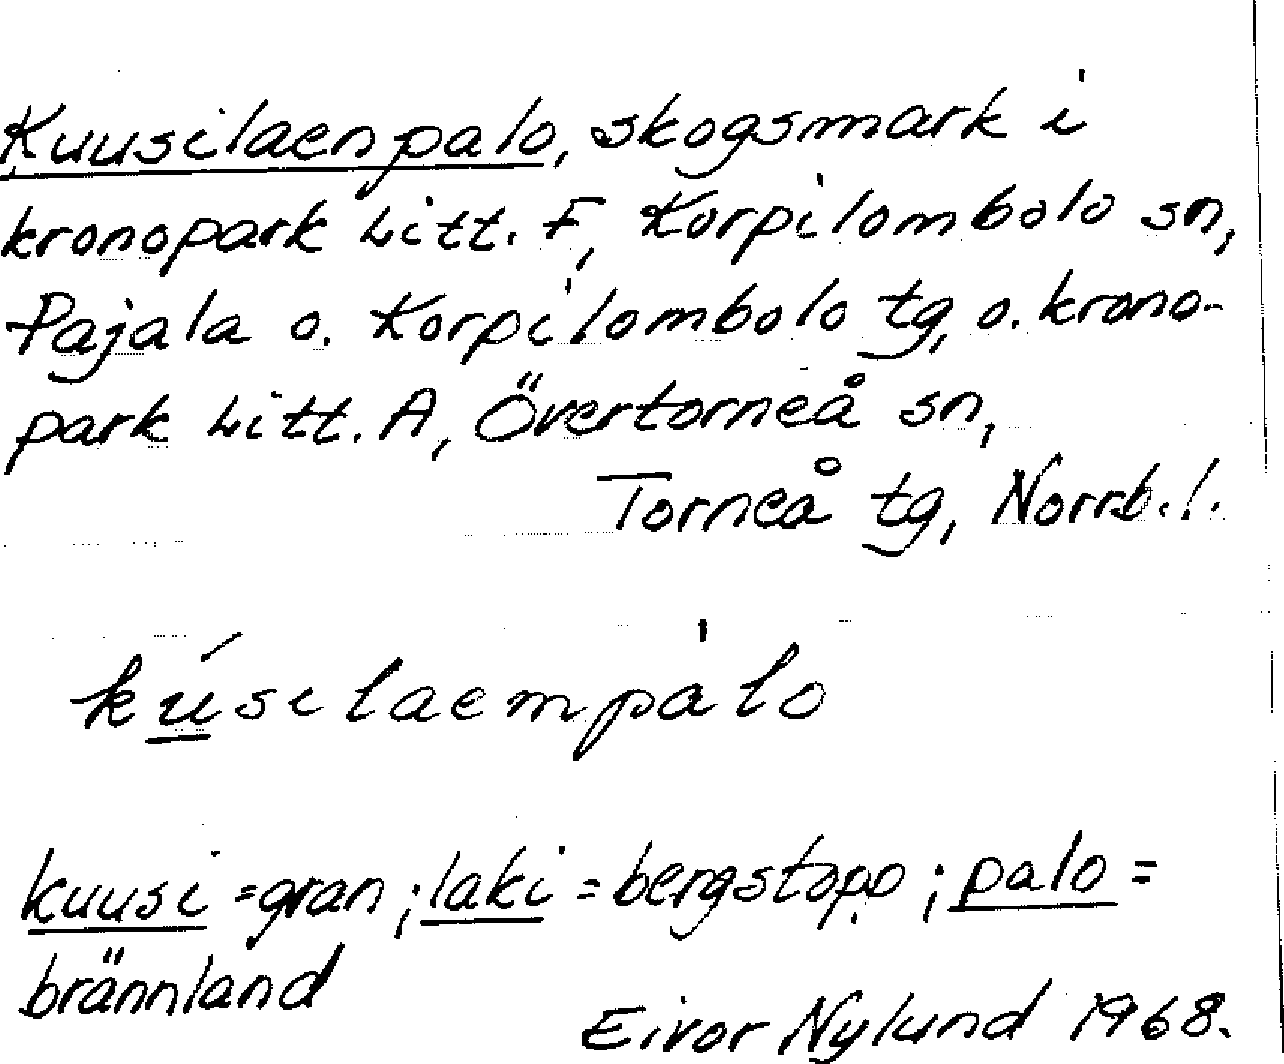 Kuusilaenpalo, skogsmark i
kronopark Litt. F, Korpilombolo sn,
Pajala o. Korpilombolo tg, o. krono-
park Litt. A, Övertorneå sn,
Torneå tg, Norrb. l.
kúsilaempàlo
kuusi = gran ; laki = bergstopp ; palo =
brännland
Eivor Nylund 1968.